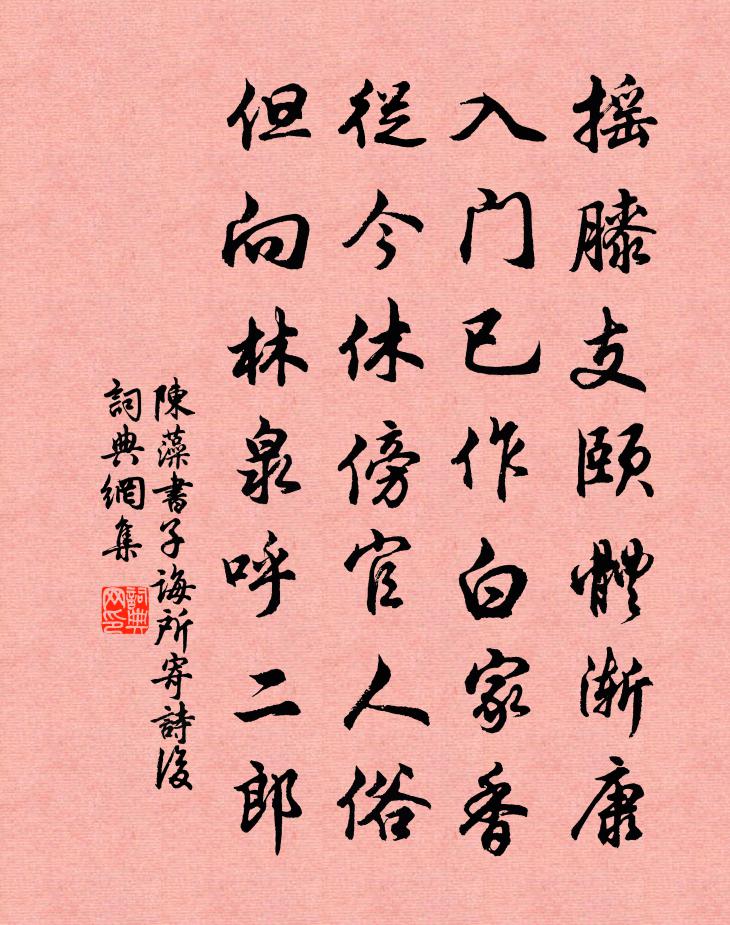 搖膝支頤體漸康
入门已作白家香
從今休傍官人俗
但向林泉呼二郎
陳藻書子誨所寄詩後
詞典網集
詞典网印